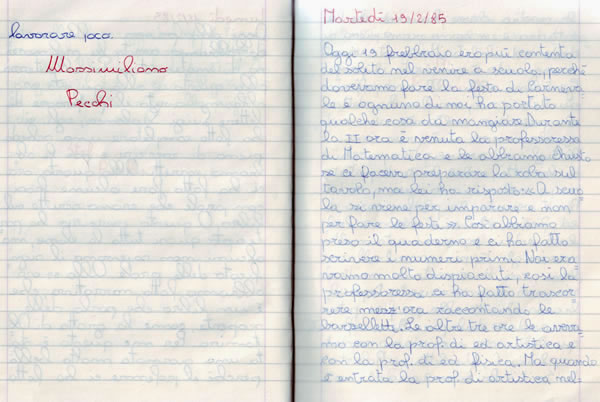 lavorare poco.
Massimiliano
Pecchi
Martedì 19/2/85
Oggi 19 frebbraio ero più contenta
del solito nel venire a scuola, perché
dovevamo fare la festa di Carneva
le e ognuno di noi, ha portato
qualche cosa da mangiare. Durante
la II ora è venuta la professoressa
di Matematica e le abbiamo chiesto
se ci faceva preparare la roba sul
tavolo, ma lei ha risposto: << A scuo
la si viene per imparare e non
per fare le feste >>. Così abbiamo
preso il quaderno e ci ha fatto
scrivere i numeri primi. Noi era
vamo molto dispiaciuti, così la
professoressa ci ha fatto trascor
rere mezz'ora raccontando le
barzellette. Le altre tre ore le aveva
mo con la prof. di ed artistica e
con la prof. di ed. fisica. Ma quando
è entrata la prof. di artistica nel-